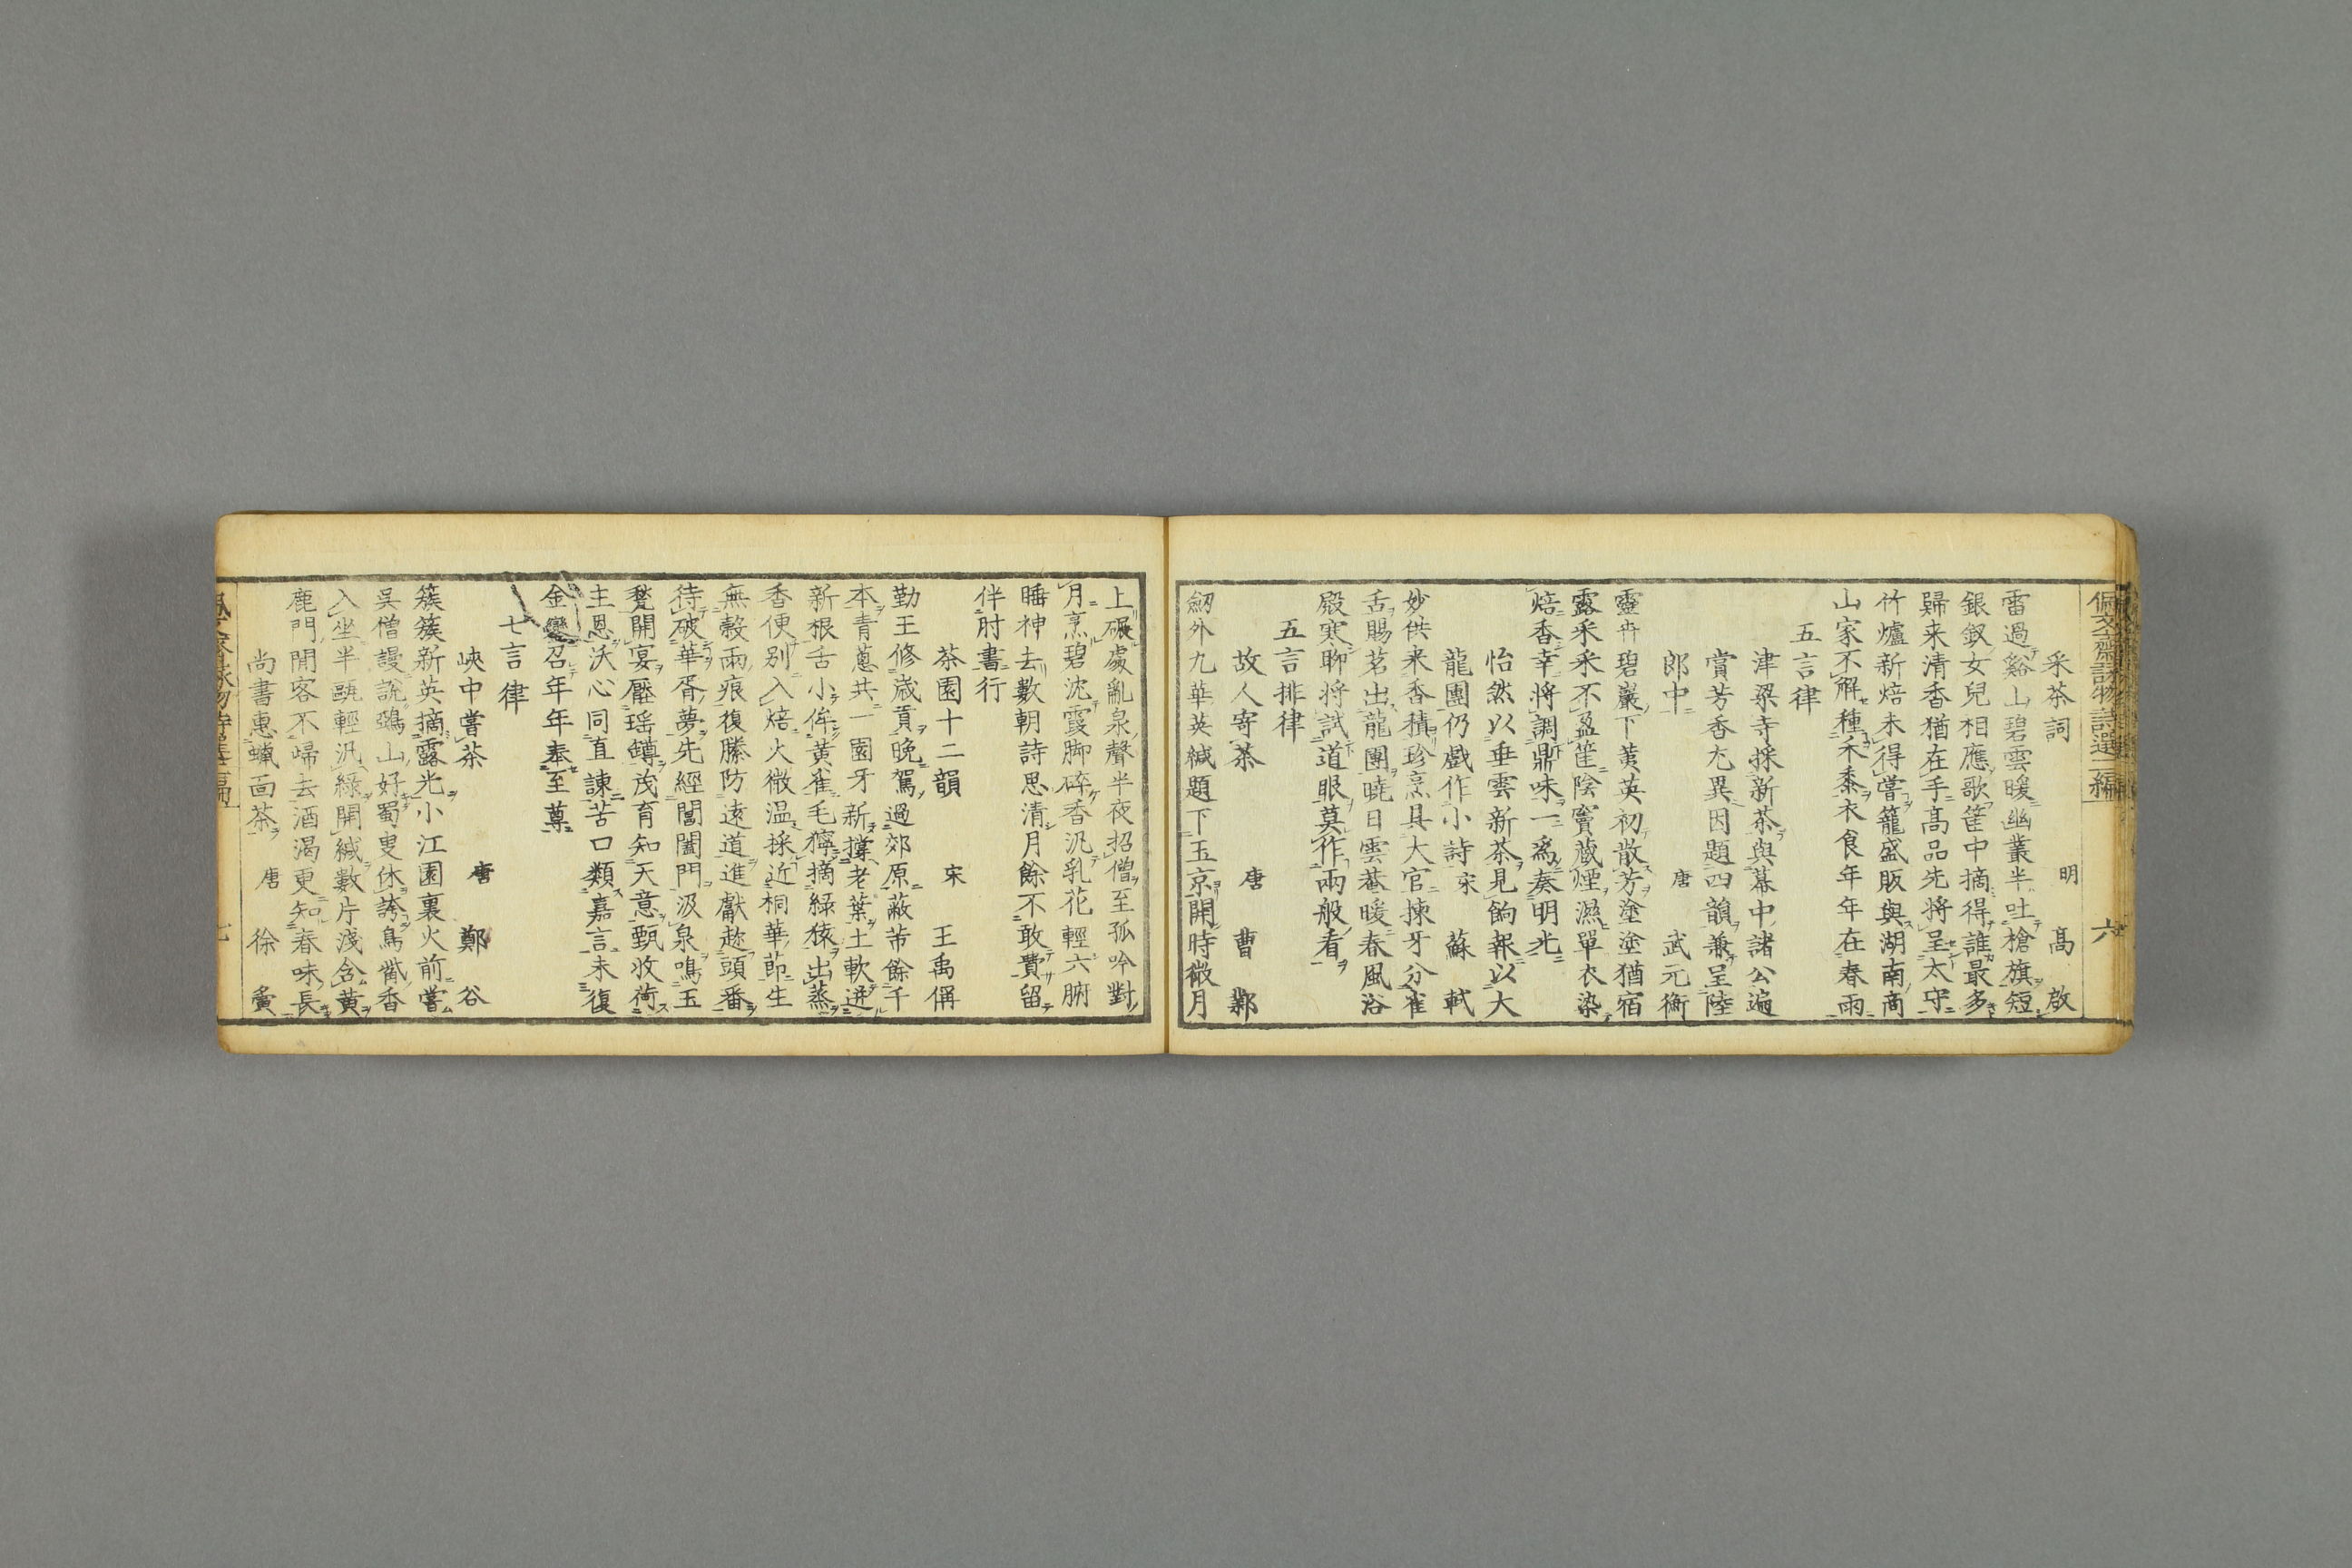 佩文齋詠物詩選二編　六
采茶詞　明　高　啟
雷過谿山碧雲暖幽叢半吐槍旗短
銀釵女兒相應歌筐中摘得誰最多
歸来清香猶在手高品先将呈太守
竹爐新焙未得嘗籠盛販與湖南商
山家不解種禾黍衣食年年在春雨
五言律
津梁寺採新茶與幕中諸公遍
賞芳香尤異因題四韻兼呈陸
郎中　唐　武元衡
靈卉碧巖下荑英初散芳塗塗猶宿
露采采不盈筐陰竇藏煙濕單衣染
焙香幸将調鼎味一為奏明光
怡然以垂雲新茶見餉報以大
龍團仍戲作小詩　宋　蘇　軾
妙供来香積珍烹具大官揀牙分雀
舌賜茗出龍團曉日雲菴暖春風浴
殿寒聊将試道眼莫作兩般看
五言排律
故人寄茶　唐　曹　鄴
劒外九華英緘題下玉京開時微月
上碾處亂泉聲半夜招僧至孤吟對
月烹碧沈霞脚碎香汎乳花輕六腑
睡神去數朝詩思清月餘不敢費留
伴肘書行
茶園十二韻　宋　王禹偁
勤王修歳貢晚駕過郊原蔽芾餘千
本青蔥共一園牙新撑老葉土軟迸
新根舌小侔黄雀毛獰摘緑猿出蒸
香便别入焙火微温採近桐華節生
無縠雨痕復縢防遠道進獻趂頭番
待破華胥夢先經閶闔門汲泉鳴玉
甃開宴壓瑶罇茂育知天意甄收荷
主恩沃心同直諫苦口類嘉言未復
金鑾召年年奉至尊
七言律
峽中嘗茶　唐　鄭　谷
簇簇新英摘露光小江園裏火前嘗
吳僧謾說鴉山好蜀叟休誇鳥觜香
入坐半甌輕汎緑開緘數片淺含黄
鹿門閒客不歸去酒渴更知春味長
尚書惠蠟面茶　唐　徐　夤
七